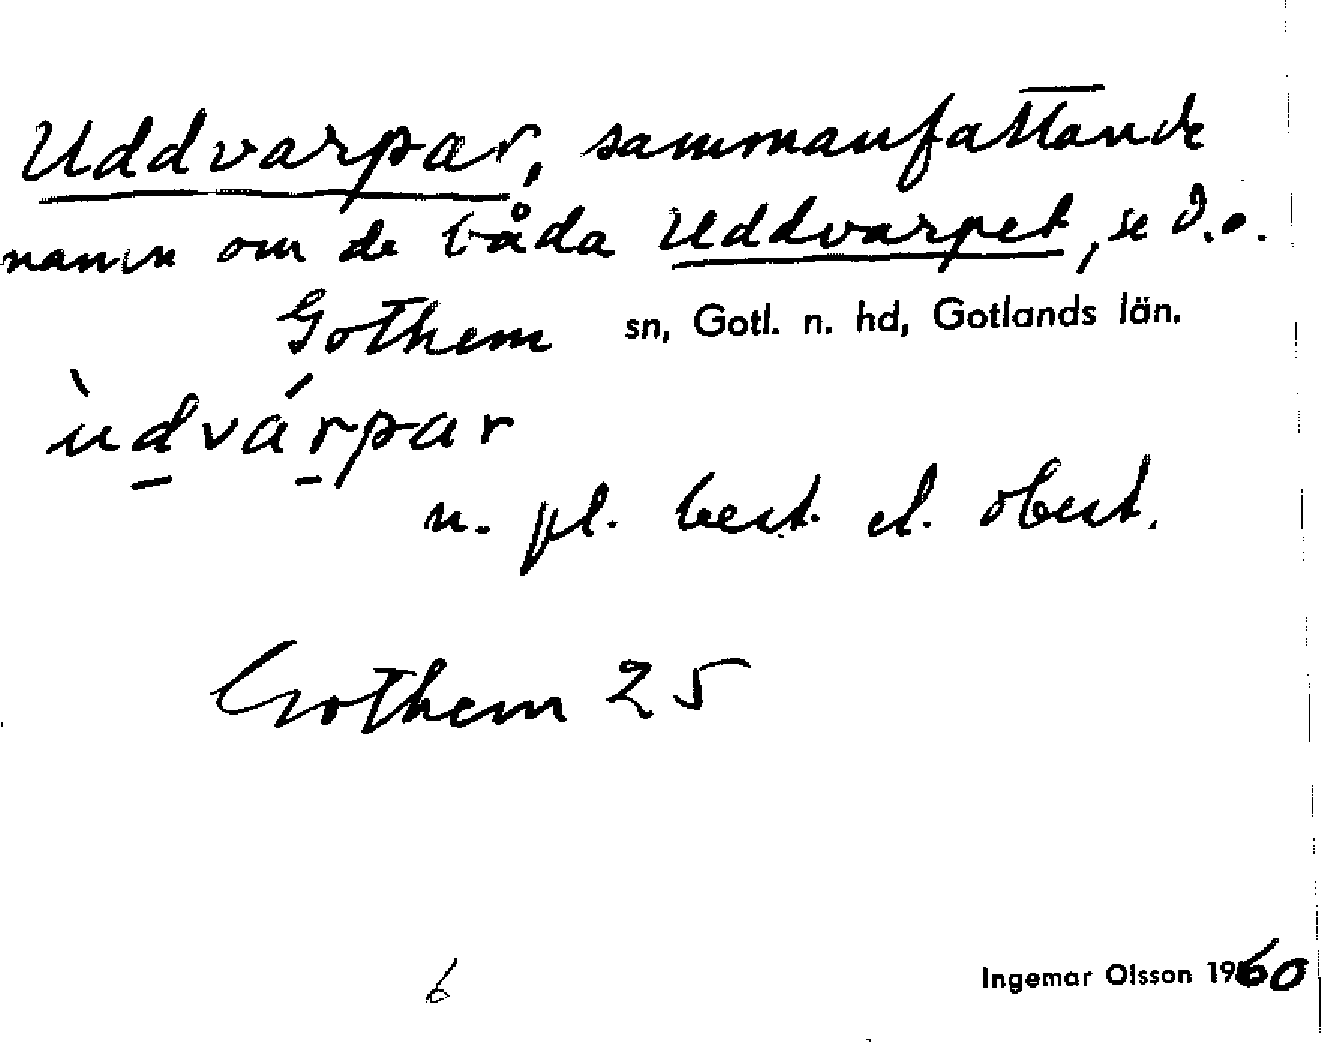 Uddvarpar, sammanfattande
namn om de båda Uddvarpet, se d.o.
Gothem sn, Gotl. n. hd, Gotlands län.
ùd̠vár̠par
n. pl. best. el. obest.
Gothem 25
6
Ingemar Olsson 1960